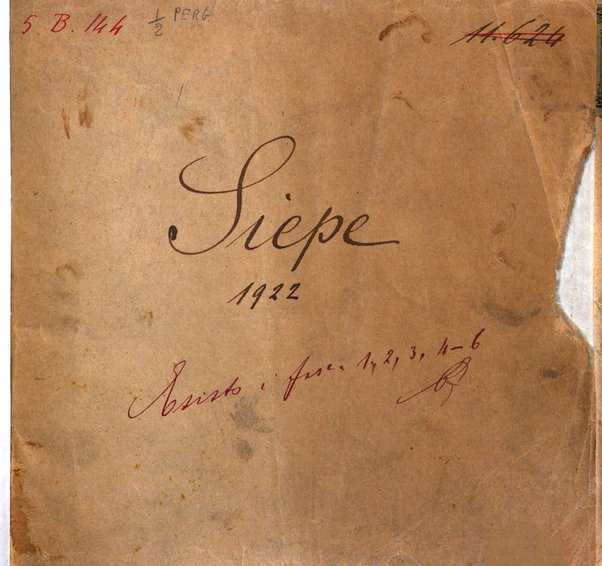 5. B. 144 ½ PERG 11.624
Siepe
1922
Esisto i fasc. 1, 2, 3, 4-6